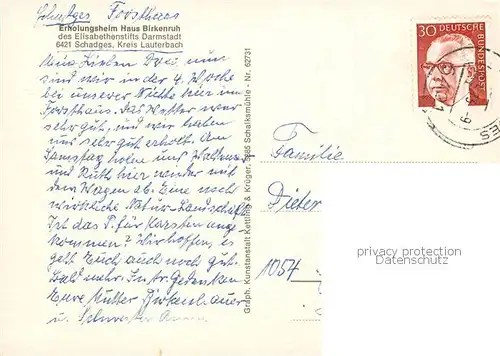 Schadges Forsthaus
Erholungsheim Haus Birkenruh
des Elisabethenstifts Darmstadt
6421 Schadges, Kreis Lauterbach
Meine Lieben Drei, nun
sind wir in der 4. Woche
bei unserer Nichte hier im
Forsthaus. Das Wetter war
sehr gut, und wir haben
uns sehr gut erholt. Am
Samstag holen uns
und Ruth hier wieder mit
dem Wagen ab. Eine noch
wirkliche Natur-Landschaft.
Ist das P. für Karsten ange
kommen? Wir hoffen, es
geht Euch auch noch gut.
Bald mehr. In tr. Gedenken
Eure Mutter
u. Schwester
Graph. Kunstanstalt Kettling & Krüger, 5885 Schalksmühle - Nr. 62731
30 DEUTSCHE BUNDESPOST
Familie
Dieter
privacy protection
Datenschutz